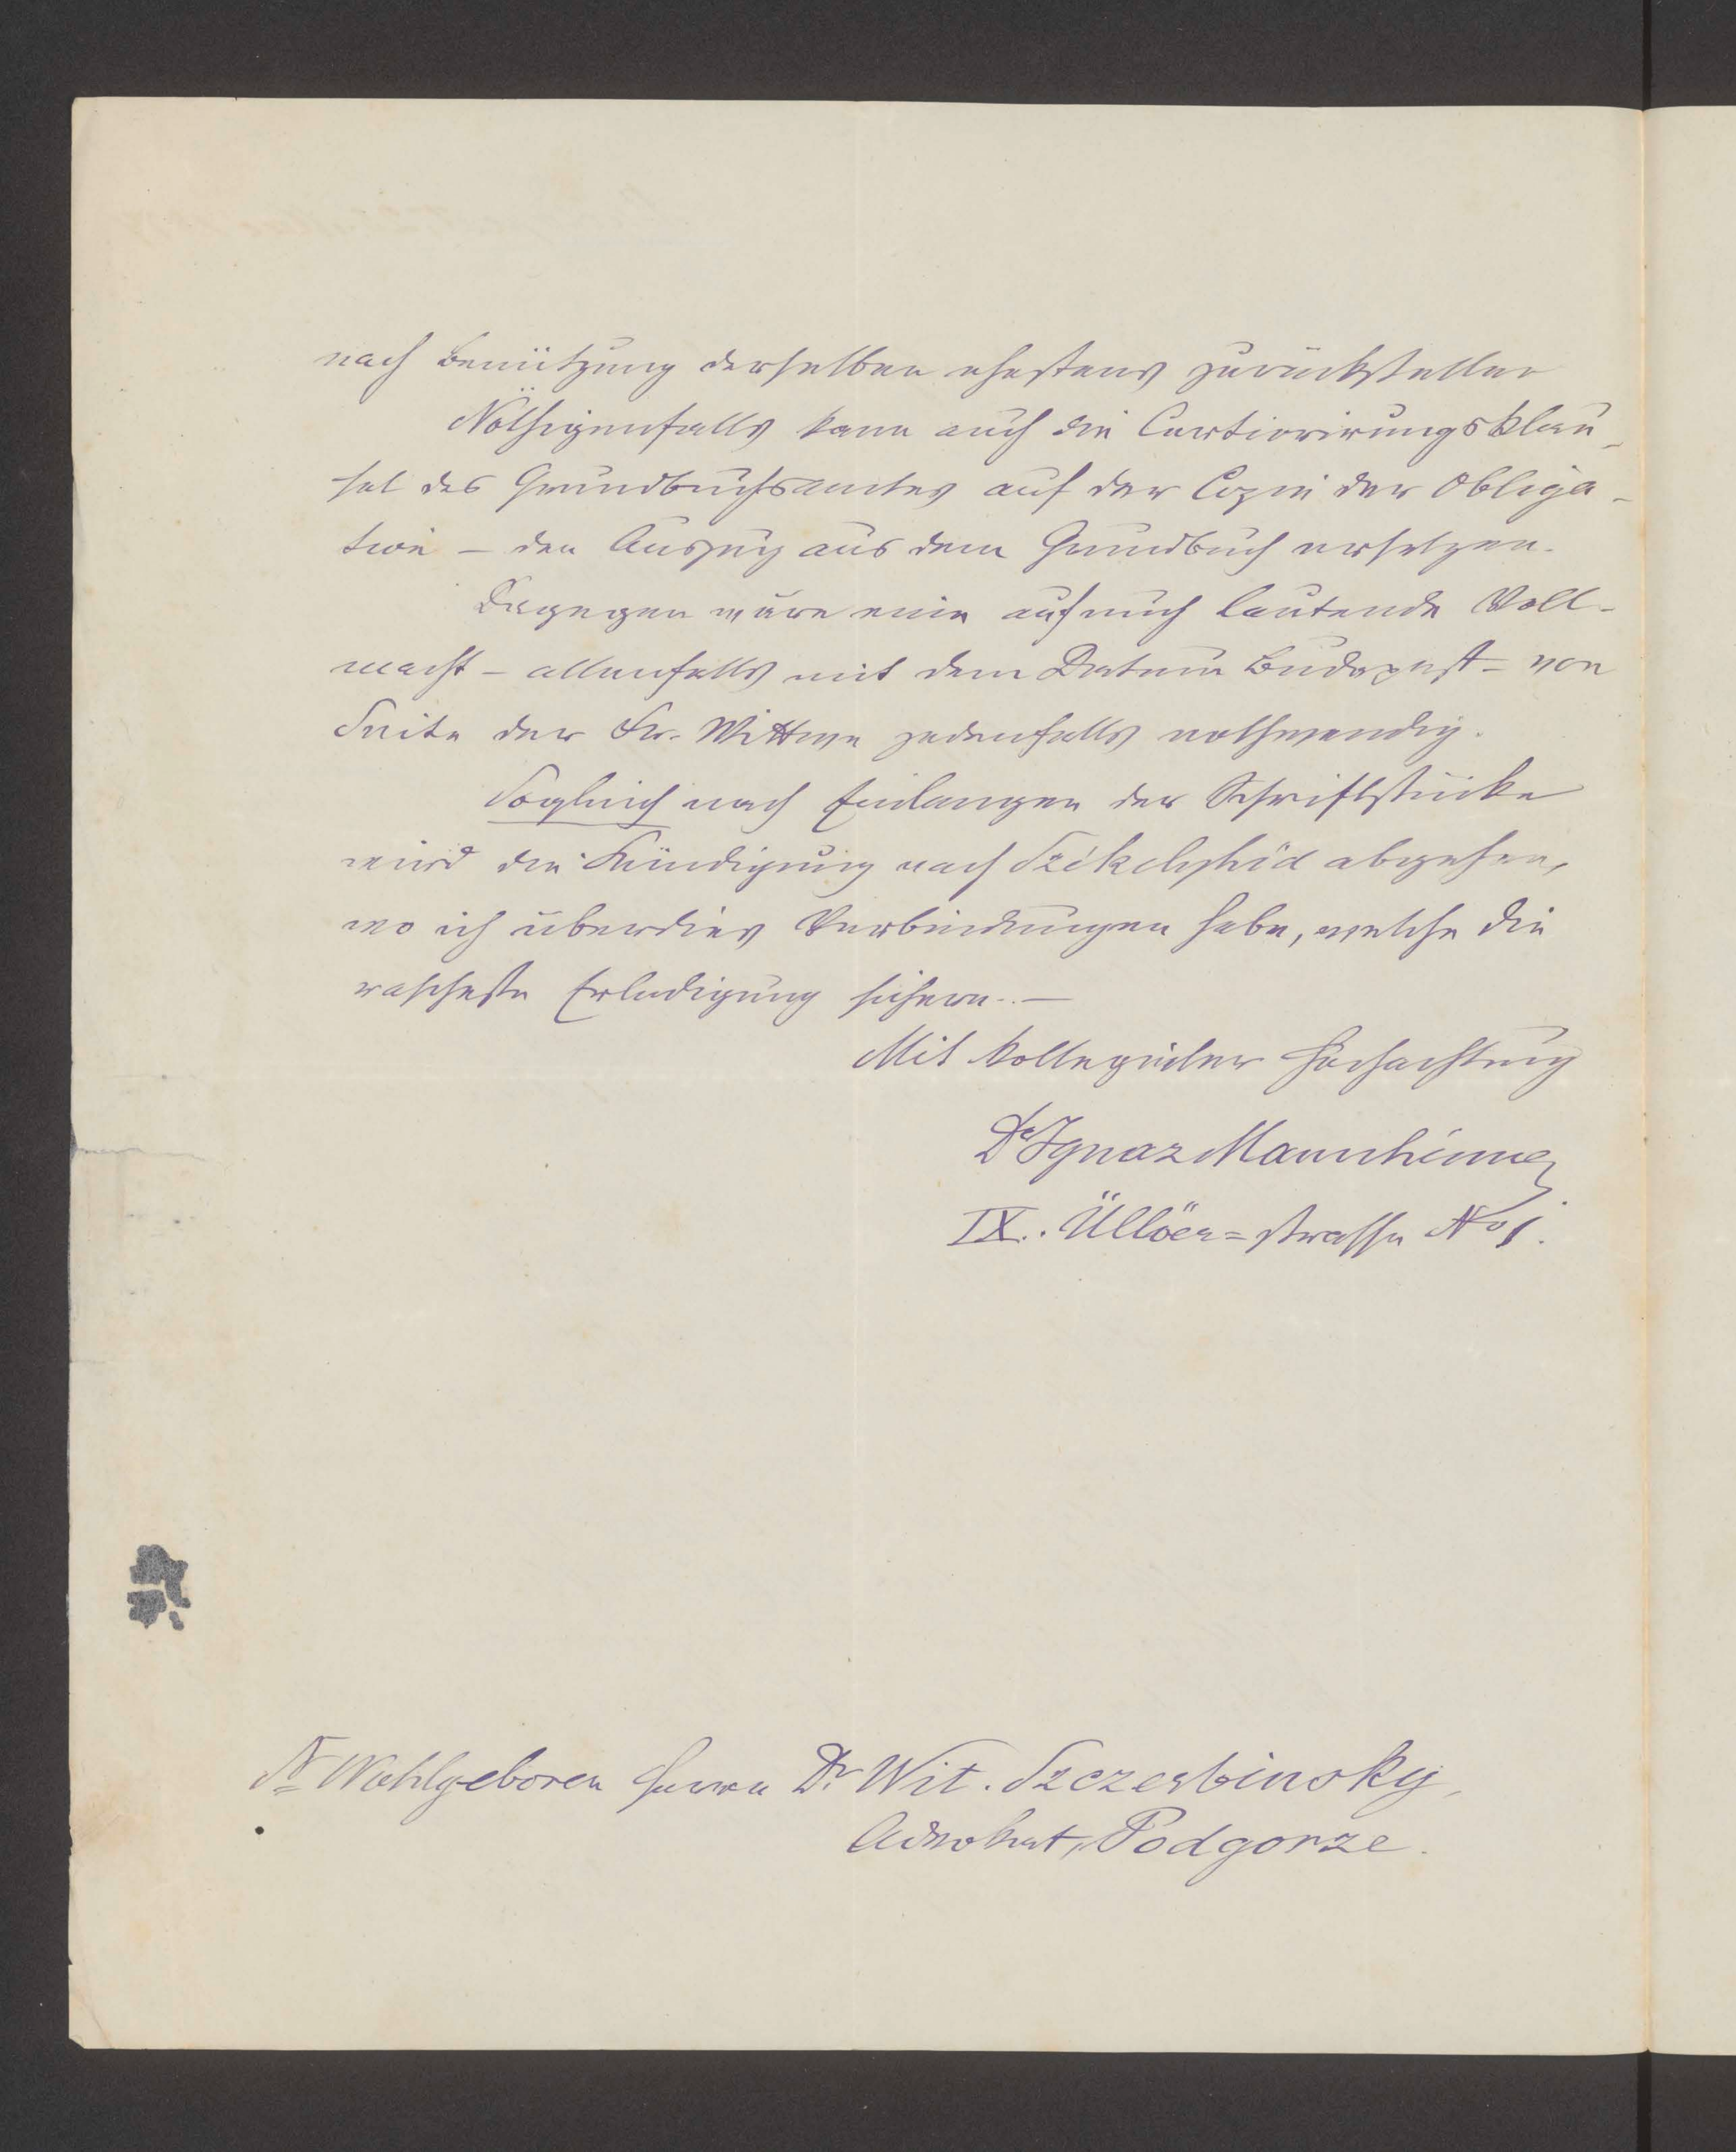 nach Benützung derselben ehestens zurückstellen
Nöthigenfalls kann auch die Certiorirungsklau-
sel des Grundbuchsamtes auf der Copie der Obliga-
tion – den Auszug aus dem Grundbuch ersetzen.
Dagegen wäre eine auf mich lautende Voll-
macht – allenfalls mit dem Datum Budapest – von
Seite der Fr. Wittwe jedenfalls nothwendig.
Sogleich nach Einlangen der Schriftstücke
wird die Kündigung nach Székelyhid abgehen,
wo ich überdies Verbindungen habe, welche die
rascheste Erledigung sichern. –
Mit kollegialer Hochachtung
Dr Ignaz Mannheimer
IX. Üllöer=strasse No 1.
Sr Wohlgeboren Herrn Dr Wit. Szczerbinsky,
Advokat, Podgorze.